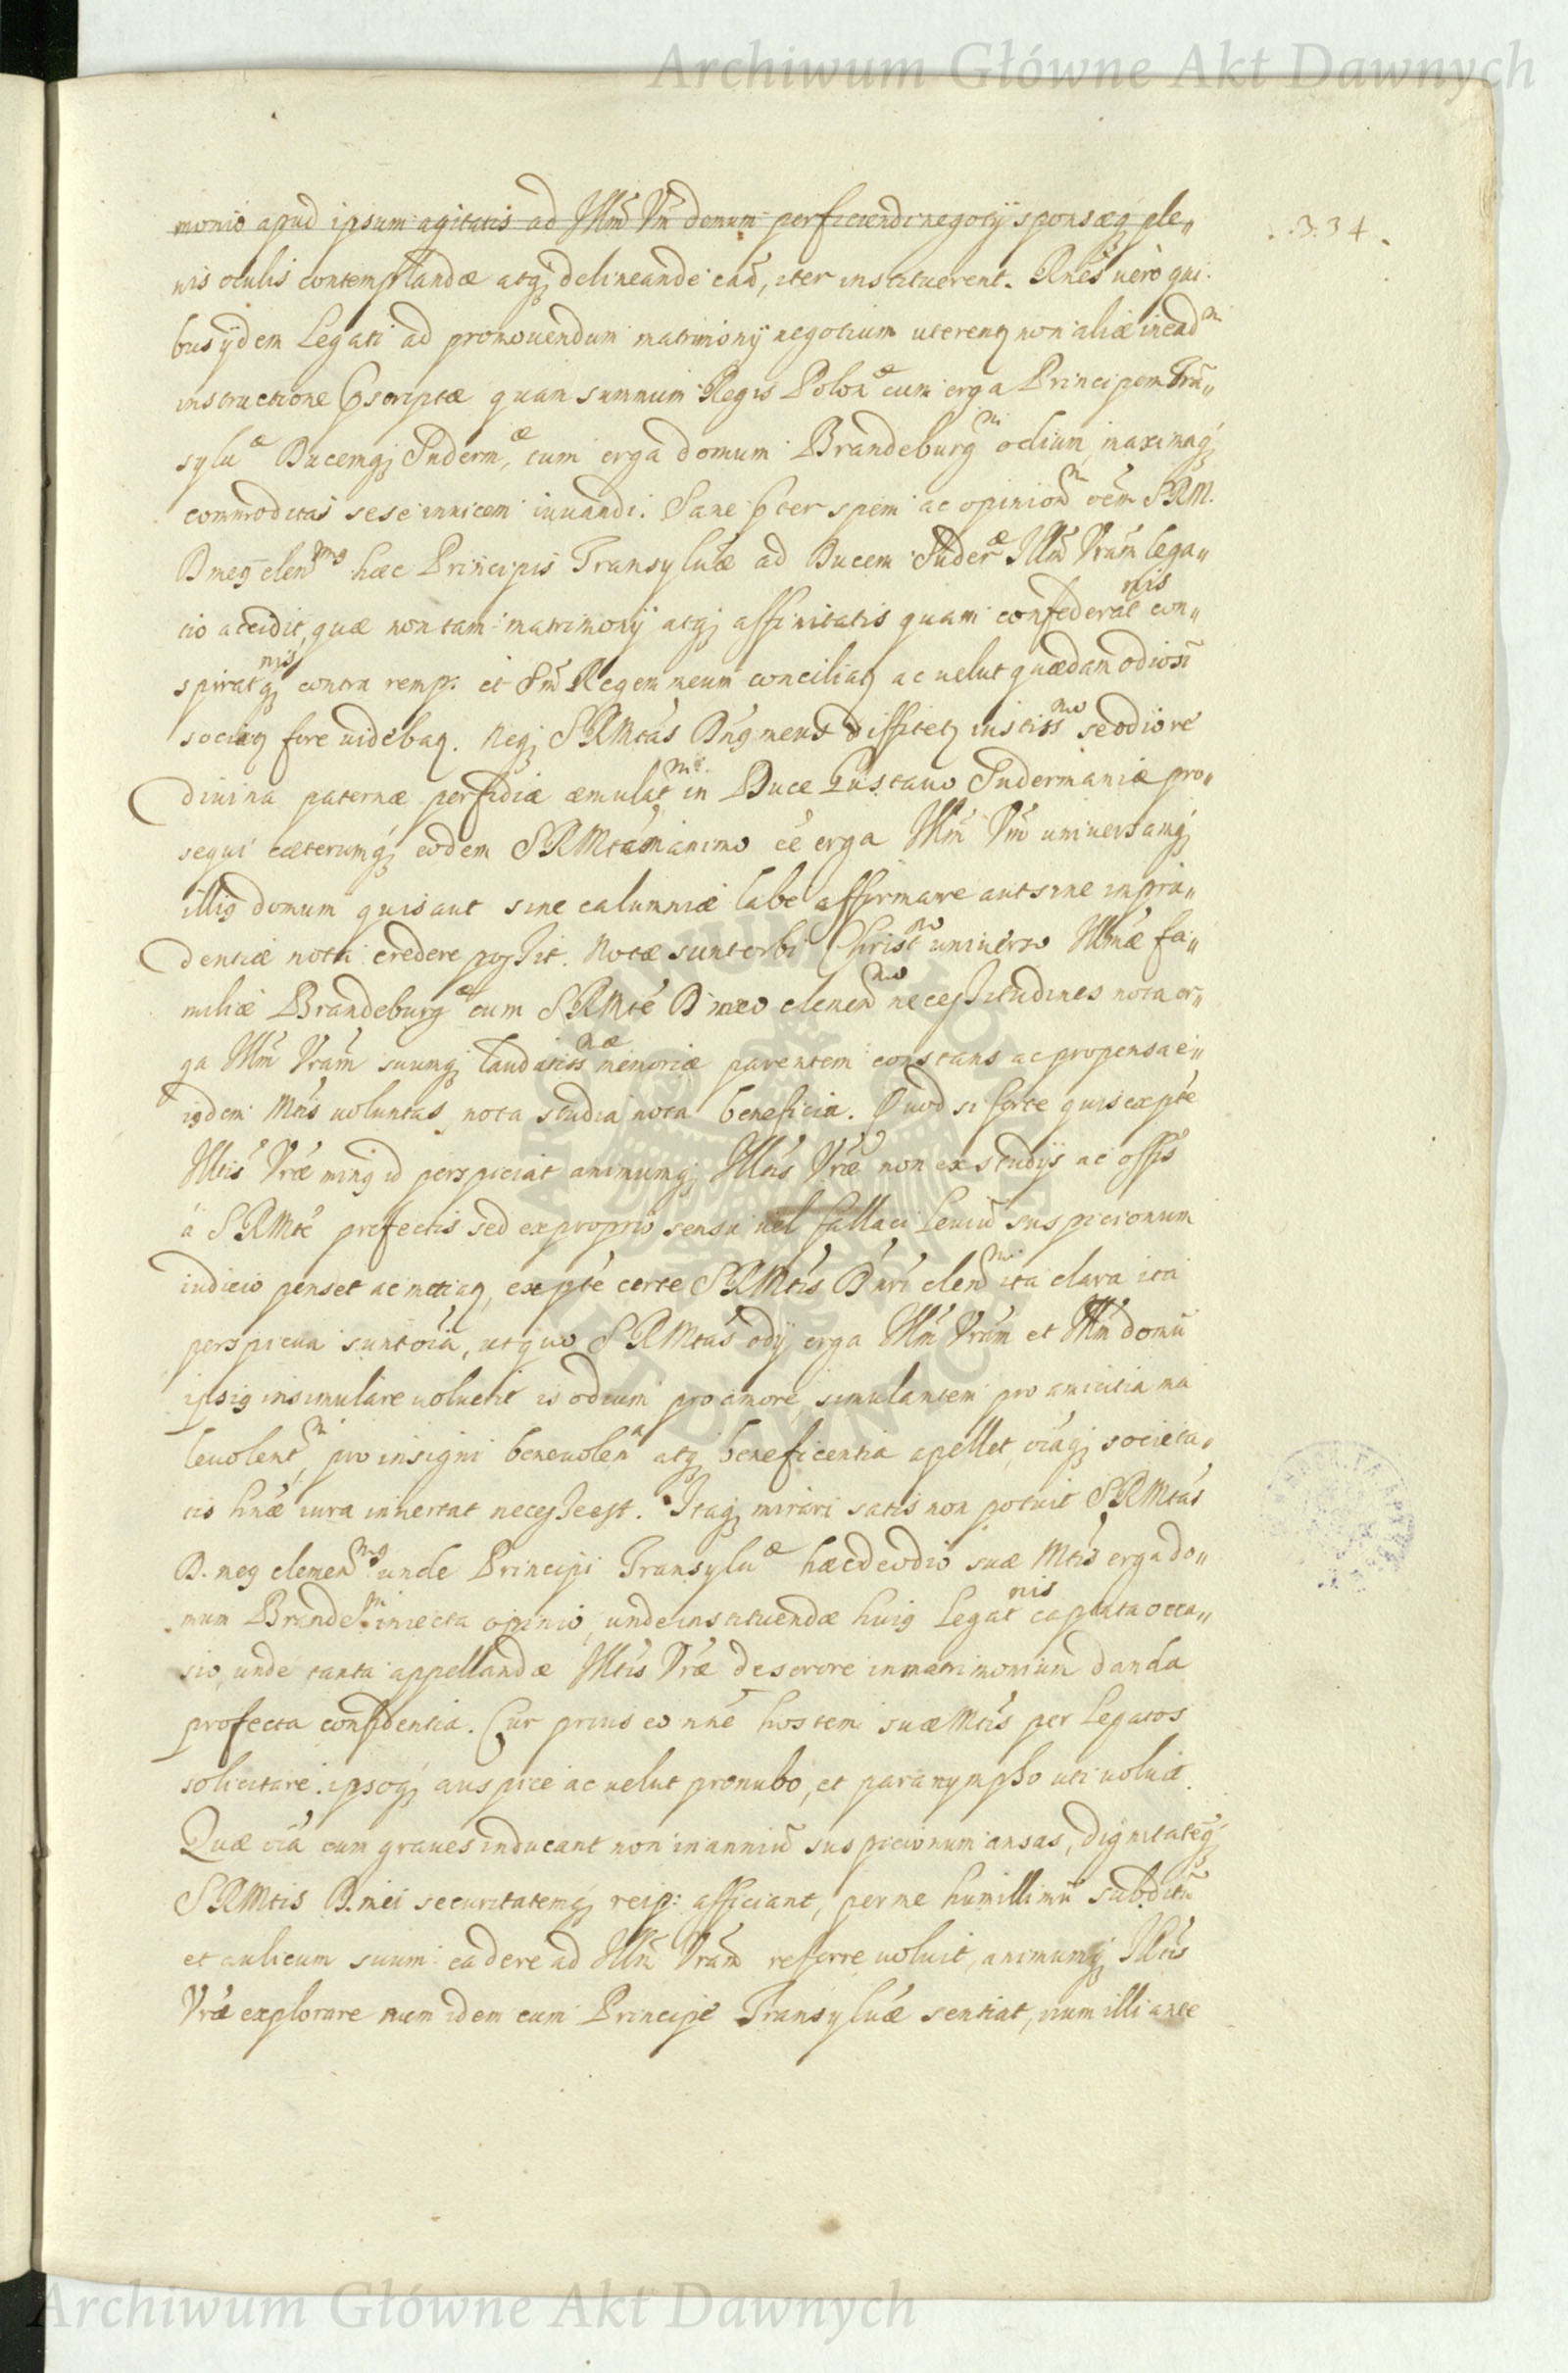 Archiwum Główne Akt Dawnych
.334.
monio apud ipsum agitatis ad Illm Vm demum perficiendi negotij sponsæq ple„
nis oculis contemplandæ atq delineandi cau, iter instituerent. Rnes uero qui
bus ijdem Legati ad promouendum matrimonij negotium uterent non aliæ in ead m
instructione pscriptæ quam summum Regis Polon æ cum erga Principem Tran„
sylu æ Ducemq Suderm æ, tum erga domum Brandeburg m odium, maximaq
commoditas sese inuicem iuuandi. Sane pter spem ac opinion m oem SRM.
D meg clen mo hæc Principis Transyluæ ad Ducem Suder æ Illm Vram lega„
tio accidit, quæ non tam matrimonij atq affinitatis quam confederat nis con„
spirat nis q contra remp. et Sm Regem meum conciliaq ac uelut quædam odiosi
sociaq fore uidebaq. Neq SRMtas Dng meus diffitetq iustiss mo se odio re
diuina paternæ perfidiæ æmulat m in Duce Gustauo Sudermaniæ pro„
sequi cæterumq eodem SRMtem animo ee erga Illm Vm uniuersamq
illig domum quis aut sine calumniæ labe affirmare aut sine inpru„
dentiæ nota credere possit. Notæ sunt orbi Christ no uniuerso Illmæ fa„
miliæ Brandeburg æ cum SRMte D meo clemen mo necessitudines nota er„
ga Illm Vram suumq laudatiss mæ memoriæ parentem constans ac propensa e„
igdem Mtis uoluntas, nota studia nota beneficia. Quod si forte quis ex pte
Illtis Vræ ming id perspiciat animumq Illtis Vræ non ex studijs ac offis
a SRMte prefectis sed ex proprio sensu uel fallaci leuiu suspicionum
iudicio penset ac metiaq, ex pte certe SRMtis D nri clen mi ita clara ita
perspicua sunt oia, ut quo SRMtas odij erga Illm Vram et Illm domu
ipsig insimulare uoluerit is odium pro amore, simulantem pro amicitia ma
leuolent m, pro insigni beneuolen a atq beneficentia apellet, oiaq societa„
tis hnæ iura inuertat necesse est. Itaq mirari satis non potuit SRMtas
D. meg clemen mo unde Principi Transylu æ hæc de odio suæ Mtis erga do„
mum Brande m iniecta opinio, unde instituendæ huig Legat nis captata occa„
sio, unde tanta appellandæ Illtis Vræ de sorore in matrimonium danda
profecta confidentia. Cur prius eo nne hostem suæ Mtis per Legatos
solicitare ipsoq auspice ac uelut pronubo, et paranympho uti uoluit.
Quæ oia cum graues inducant non inanniu suspicionum ansas, dignitateq
SRMtis D. mei securitatemq reip: afficiant, per me humillimu subditu
et aulicum suum ea de re ad Illm Vram referre uoluit, animumq Illtis
Vræ explorare num idem cum Principe Transyluæ sentiat, num illi ante
Archiwum Główne Akt Dawnych